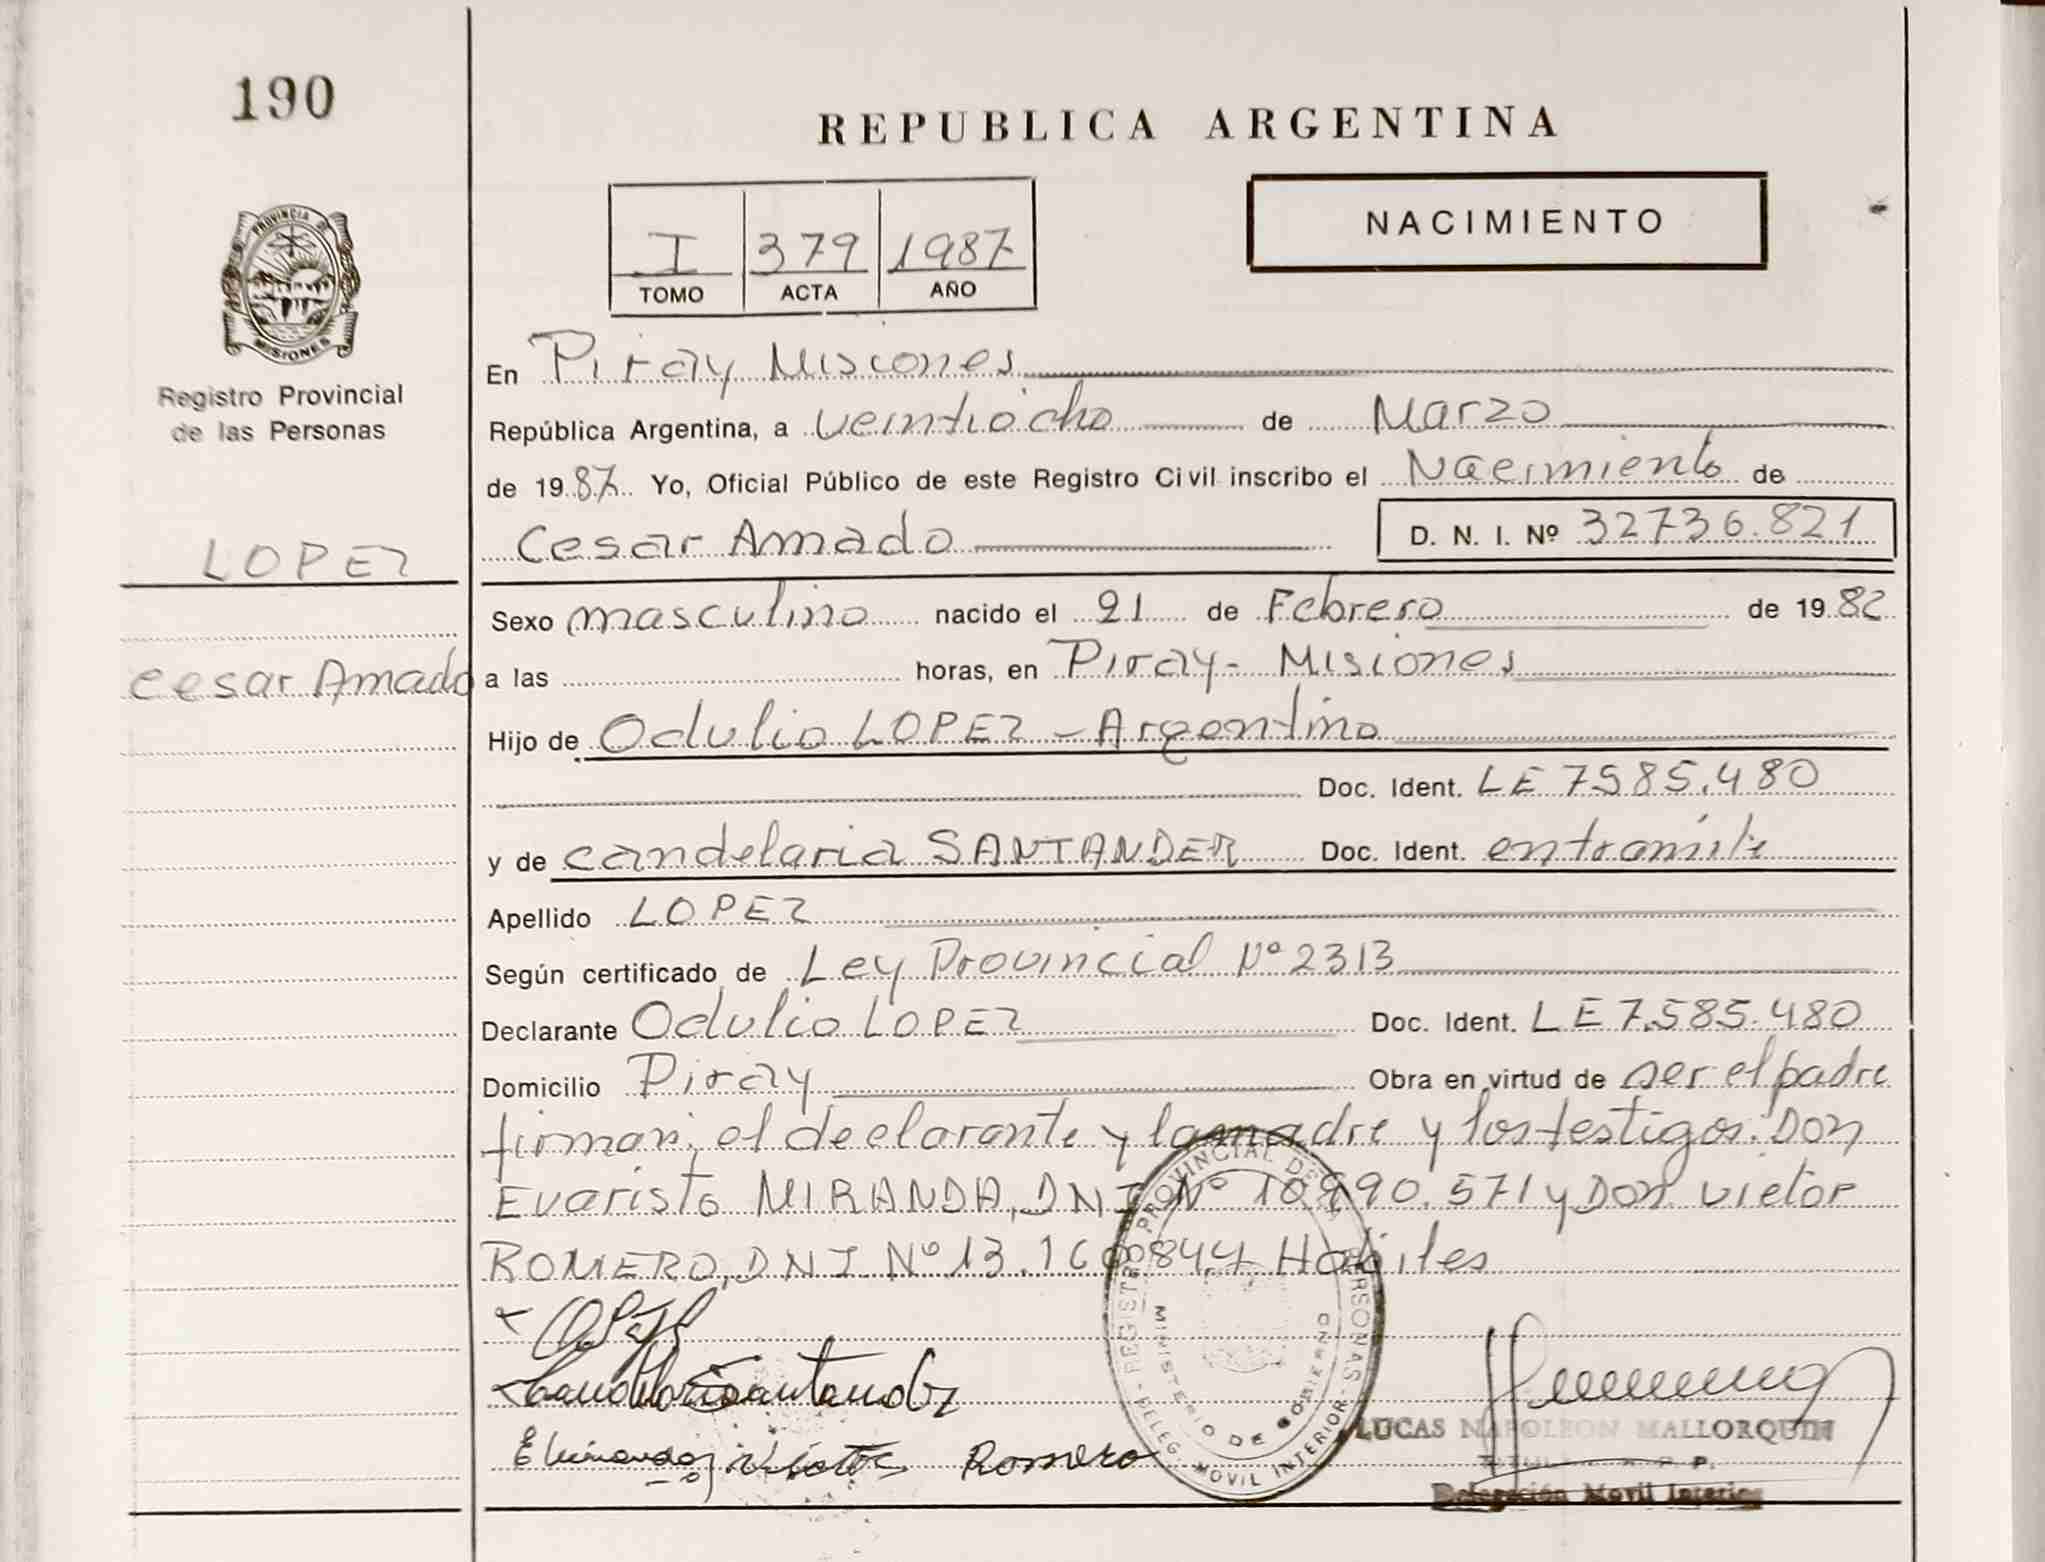 190
REPUBLICA ARGENTINA
I 379 1987
TOMO ACTA AÑO
NACIMIENTO
PROVINCIA DE
MISIONES
Registro Provincial
de las Personas
En Piray Misiones
República Argentina, a veintiocho de Marzo
de 1987. Yo, Oficial Público de este Registro Civil inscribo el Nacimiento de
Cesar Amado D. N. I. Nº 32736.821
LOPEZ
Cesar Amado
Sexo masculino nacido el 21 de Febrero de 1982
a las horas, en Piray- Misiones
Hijo de Odulio LOPEZ - Argentino
Doc. Ident. LE 7585.480
y de candelaria SANTANDER Doc. Ident. entramite
Apellido LOPEZ
Según certificado de Ley Provincial Nº 2313
Declarante Odulio LOPEZ Doc. Ident. LE 7.585.480
Domicilio Piray Obra en virtud de ser el padre
firman; el declarante y la madre y los testigos: Don
Evaristo MIRANDA, DNI Nº 10.990.571 y Don Victor
ROMERO, DNI Nº 13.160844, Habiles
Candelaria Santander
Victor Romero
REGISTRO PROVINCIAL DE LAS PERSONAS
MINISTERIO DE GOBIERNO
DELEG. MOVIL INTERIOR
LUCAS NAPOLEON MALLORQUIN
Delegación Movil Interior